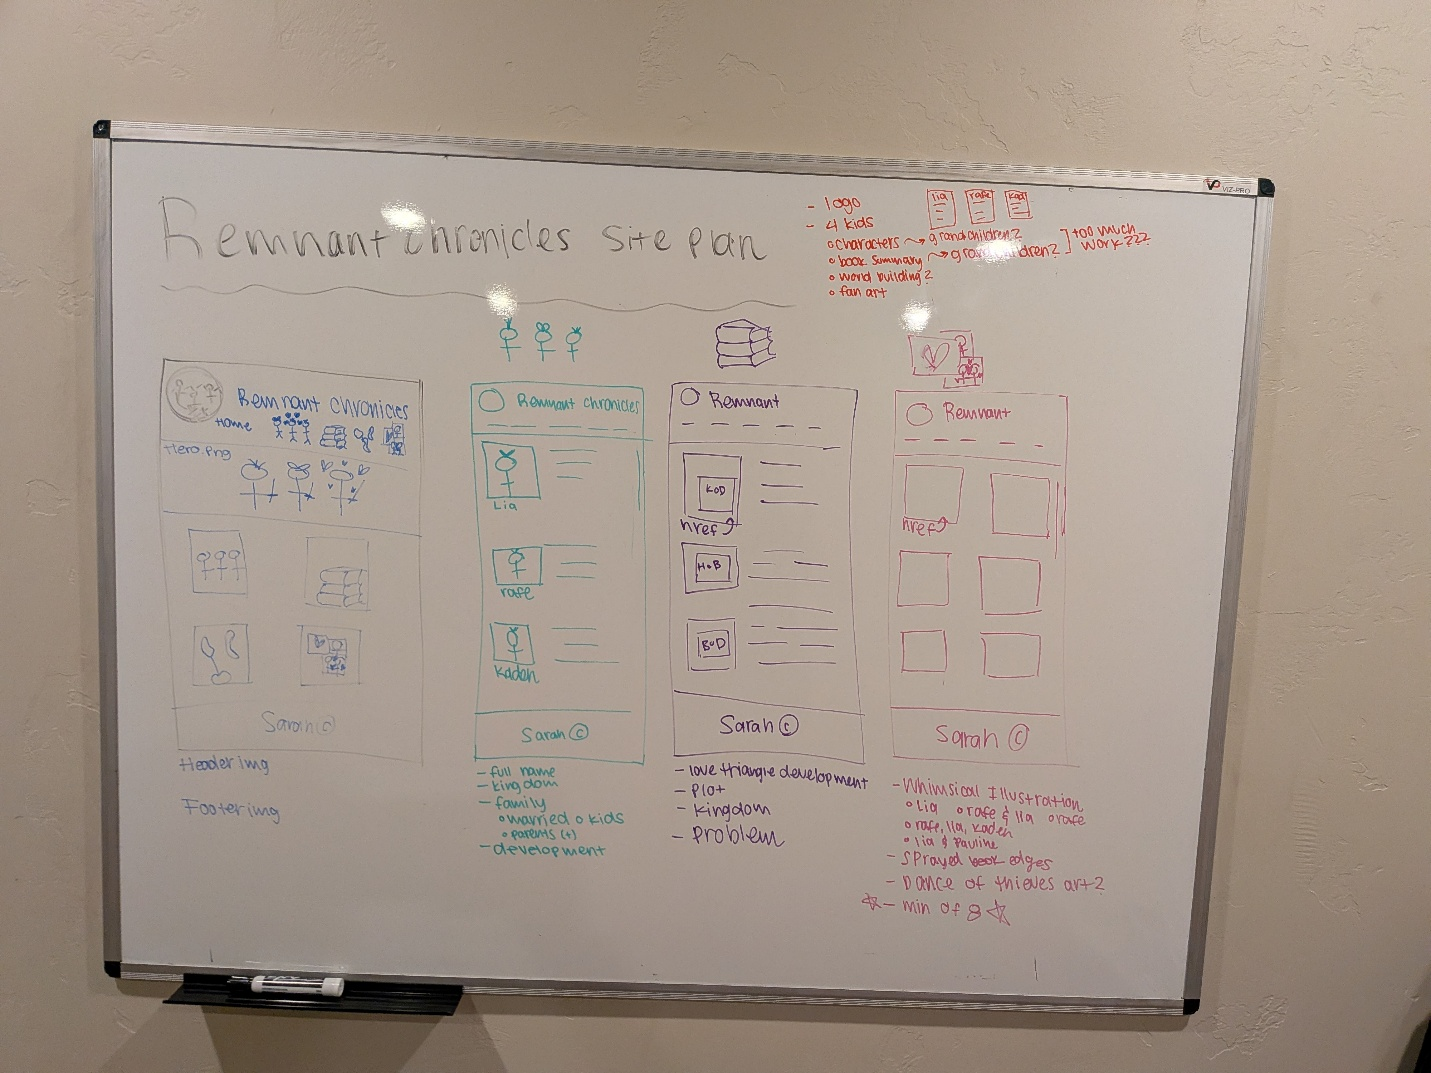 VIZ-PRO
Remnant chronicles site plan
- logo
- 4 kids
o characters → grandchildren?
o book summary → grandchildren?
] too much
work???
o world building?
o fan art
lia
rafe
kad
Remnant chronicles
Home
Hero.png
Sarah ©
Header img
Footer img
Remnant chronicles
Lia
rafe
kaden
Sarah ©
- full name
- kingdom
- family
o married o kids
o parents (+)
- development
Remnant
KoD
href
HoB
BoD
Sarah ©
- love triangle development
- plot
- kingdom
- problem
Remnant
href
Sarah ©
- Whimsical Illustration
o Lia o rafe & lia o rafe
o rafe, lia, kaden
o lia & pauline
- sprayed book edges
- Dance of thieves art?
☆ - min of 8 ☆